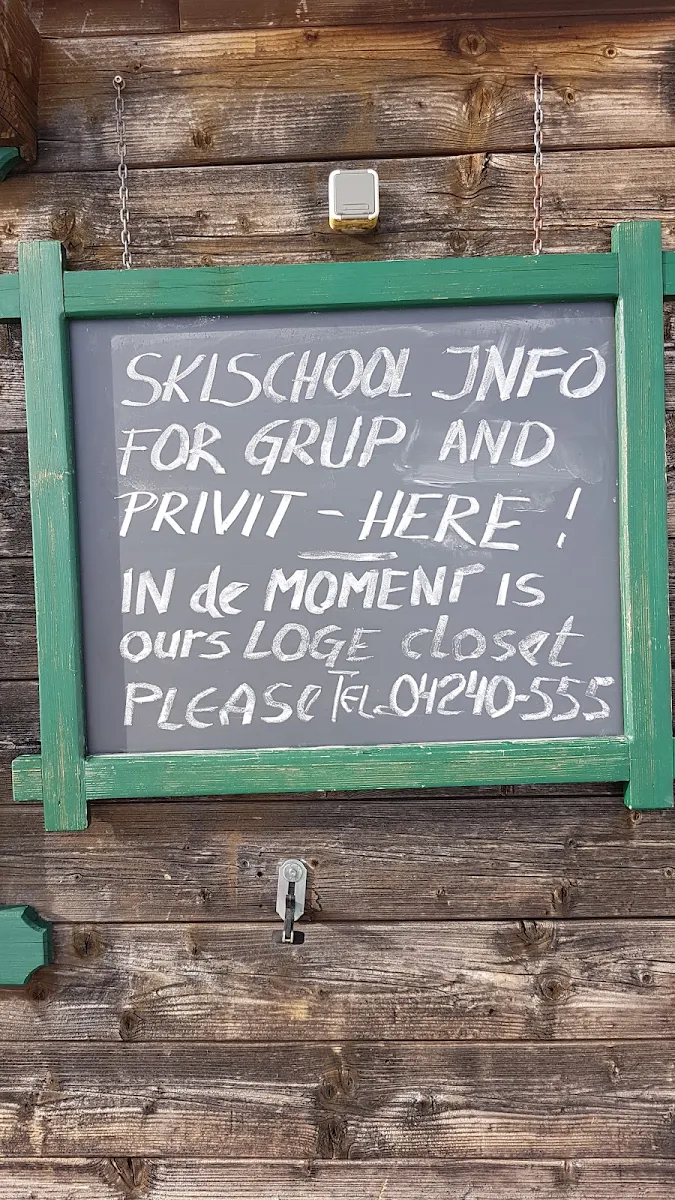 SKISCHOOL INFO
FOR GRUP AND
PRIVIT - HERE !
IN de MOMENT IS
ours LOGE closet
PLEASe TEL. 04240-555